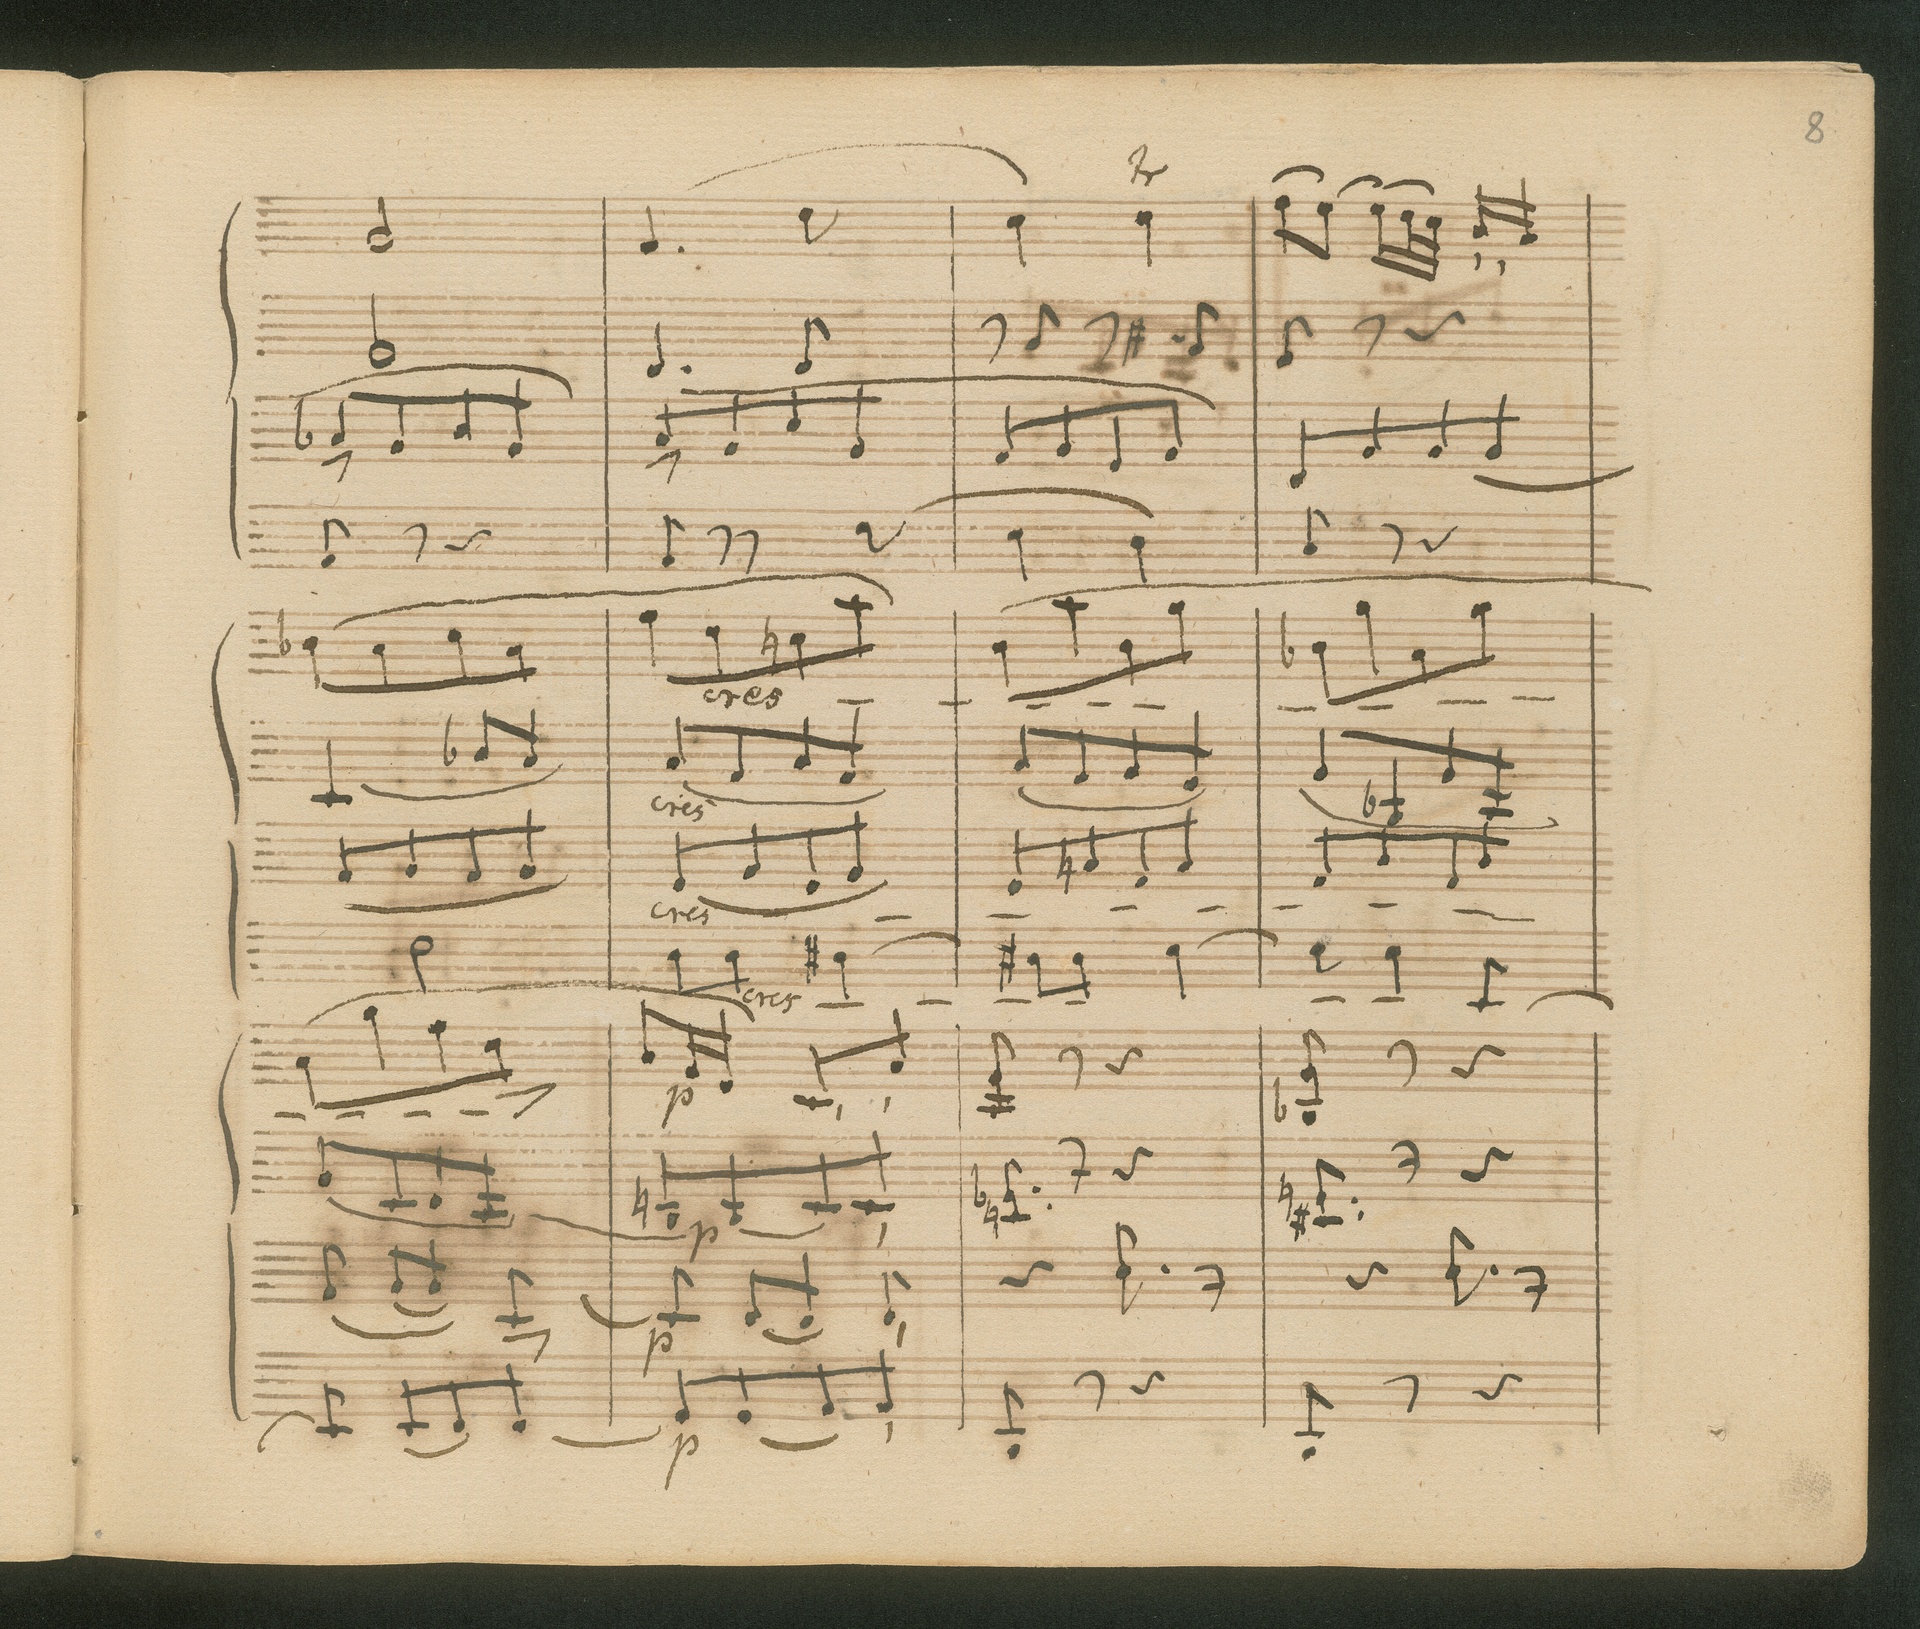 8
tr
cres
cres
cres
cres
p
p
p
p